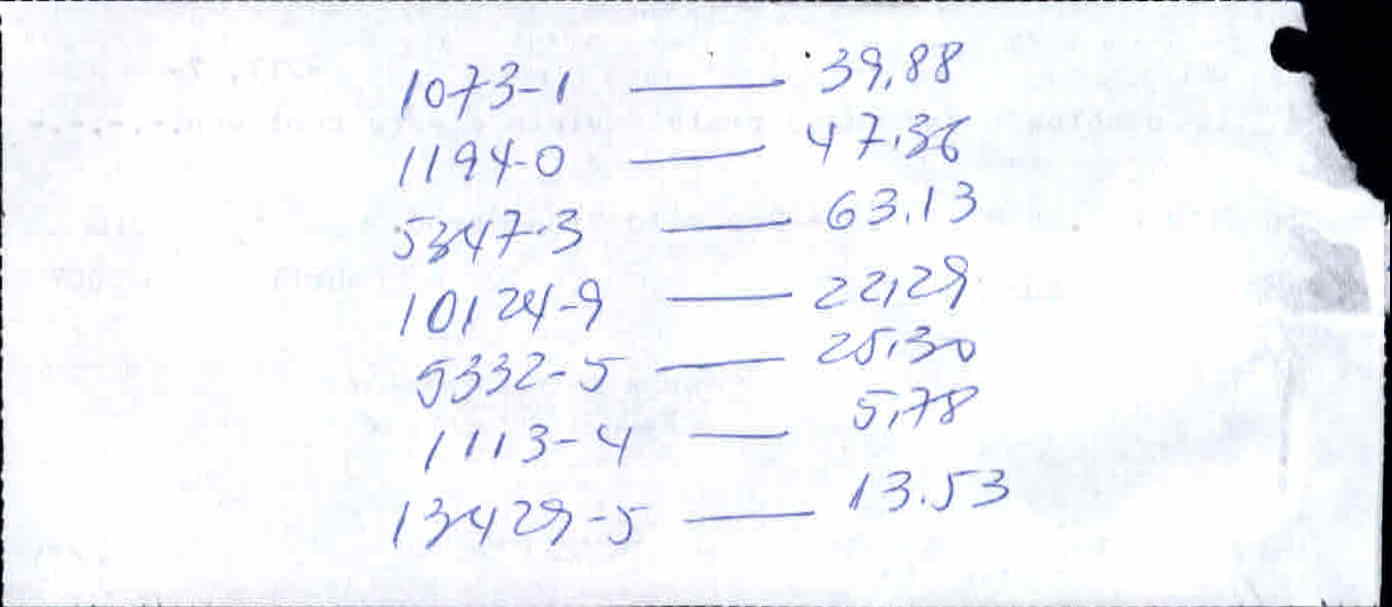 1073-1 — 39,88
1194-0 — 47,36
5347-3 — 63.13
10124-9 — 22,29
5332-5 — 25,30
1113-4 — 5,78
13429-5 — 13.53